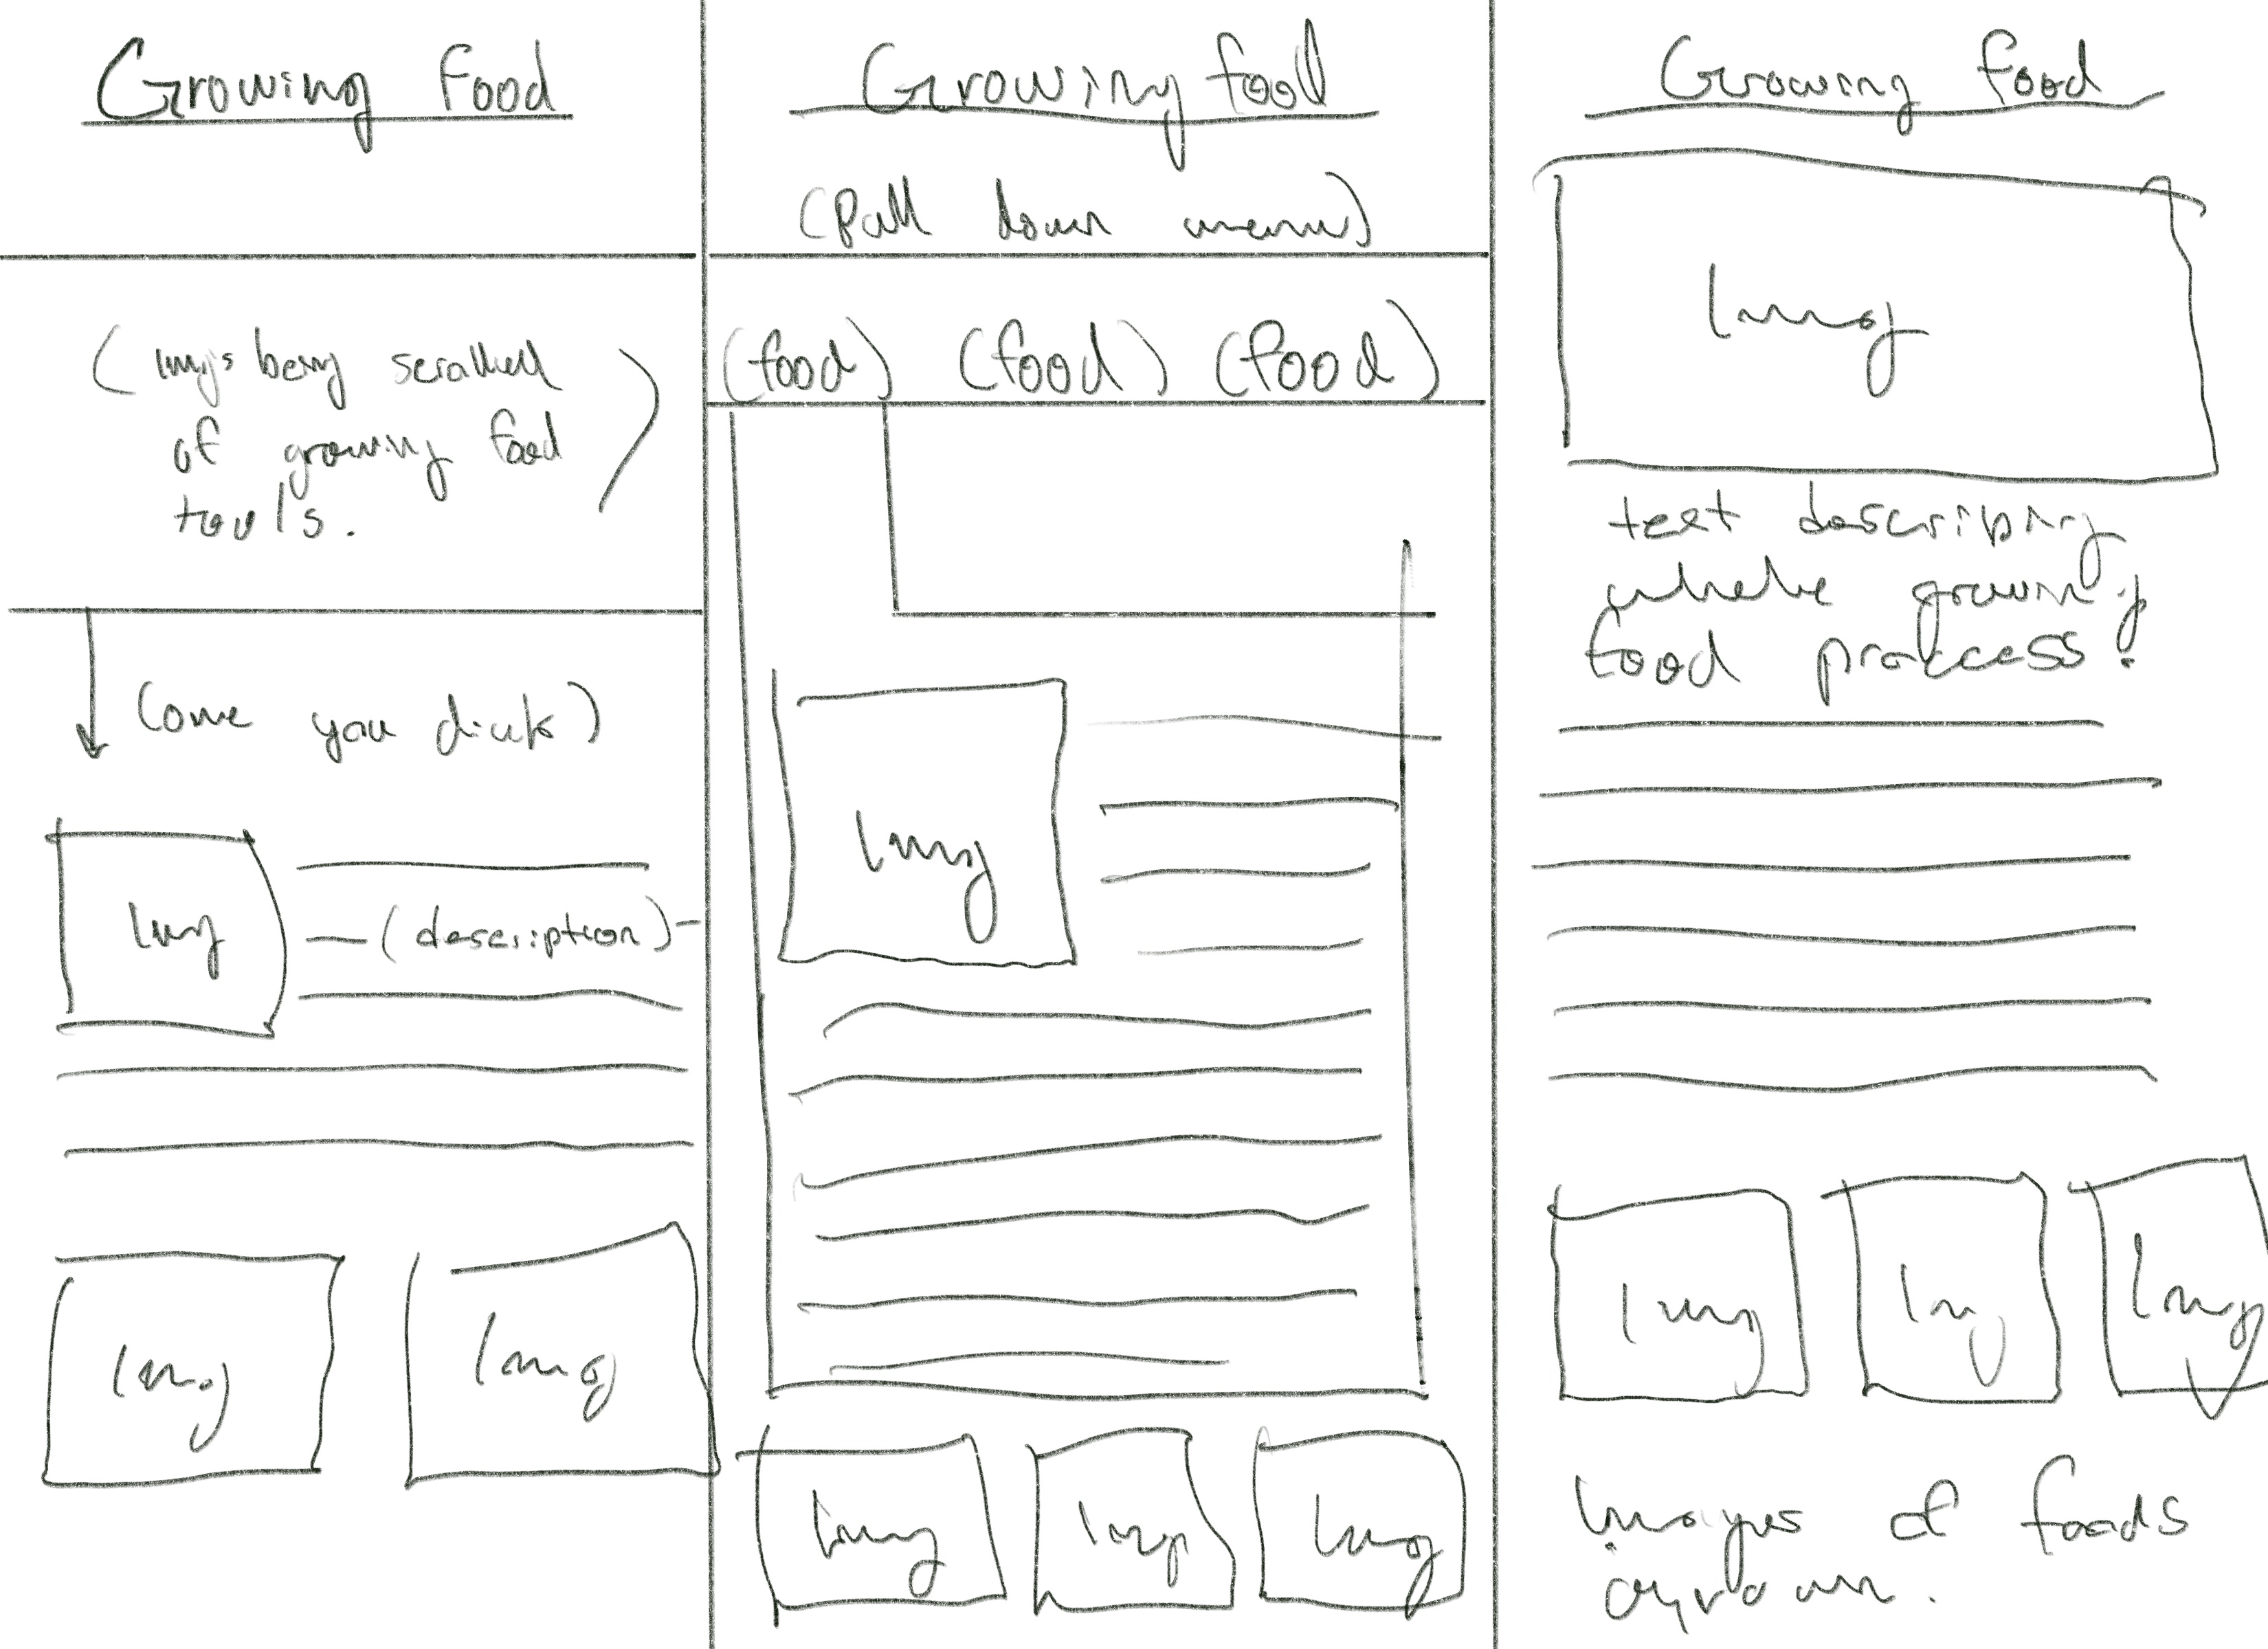 Growing Food
(Imgs being scrolled
of growing food
tools.
(once you click)
Img
(description)
Img
Img
Growing food
(Pull down menu)
(food) (food) (food)
Img
Img
Img
Img
Growing food
Img
text describing
whole growing
food proccess.
Img
Img
Img
Images of foods